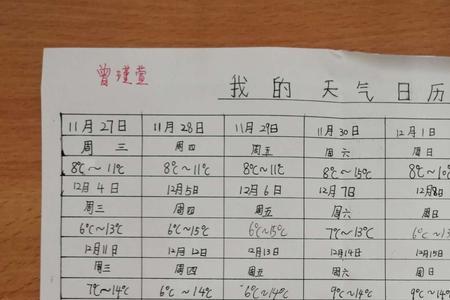 曾瑾萱
我的天气日历
11月27日 11月28日 11月29日 11月30日 12月1日
周三 周四 周五 周六 周日
8℃~11℃ 8℃~11℃ 8℃~11℃ 8℃~15℃ 8℃~10℃
12月4日 12月5日 12月6日 12月7日 12月8日
周三 周四 周五 周六 周日
6℃~13℃ 6℃~15℃ 6℃~15℃ 7℃~13℃ 6℃~13
12月11日 12月12日 12月13日 12月14日 12月15日
周三 周四 周五 周六 周日
7℃~14℃ 6℃~14℃ 6℃~14℃ 9℃~14℃ 9℃~14